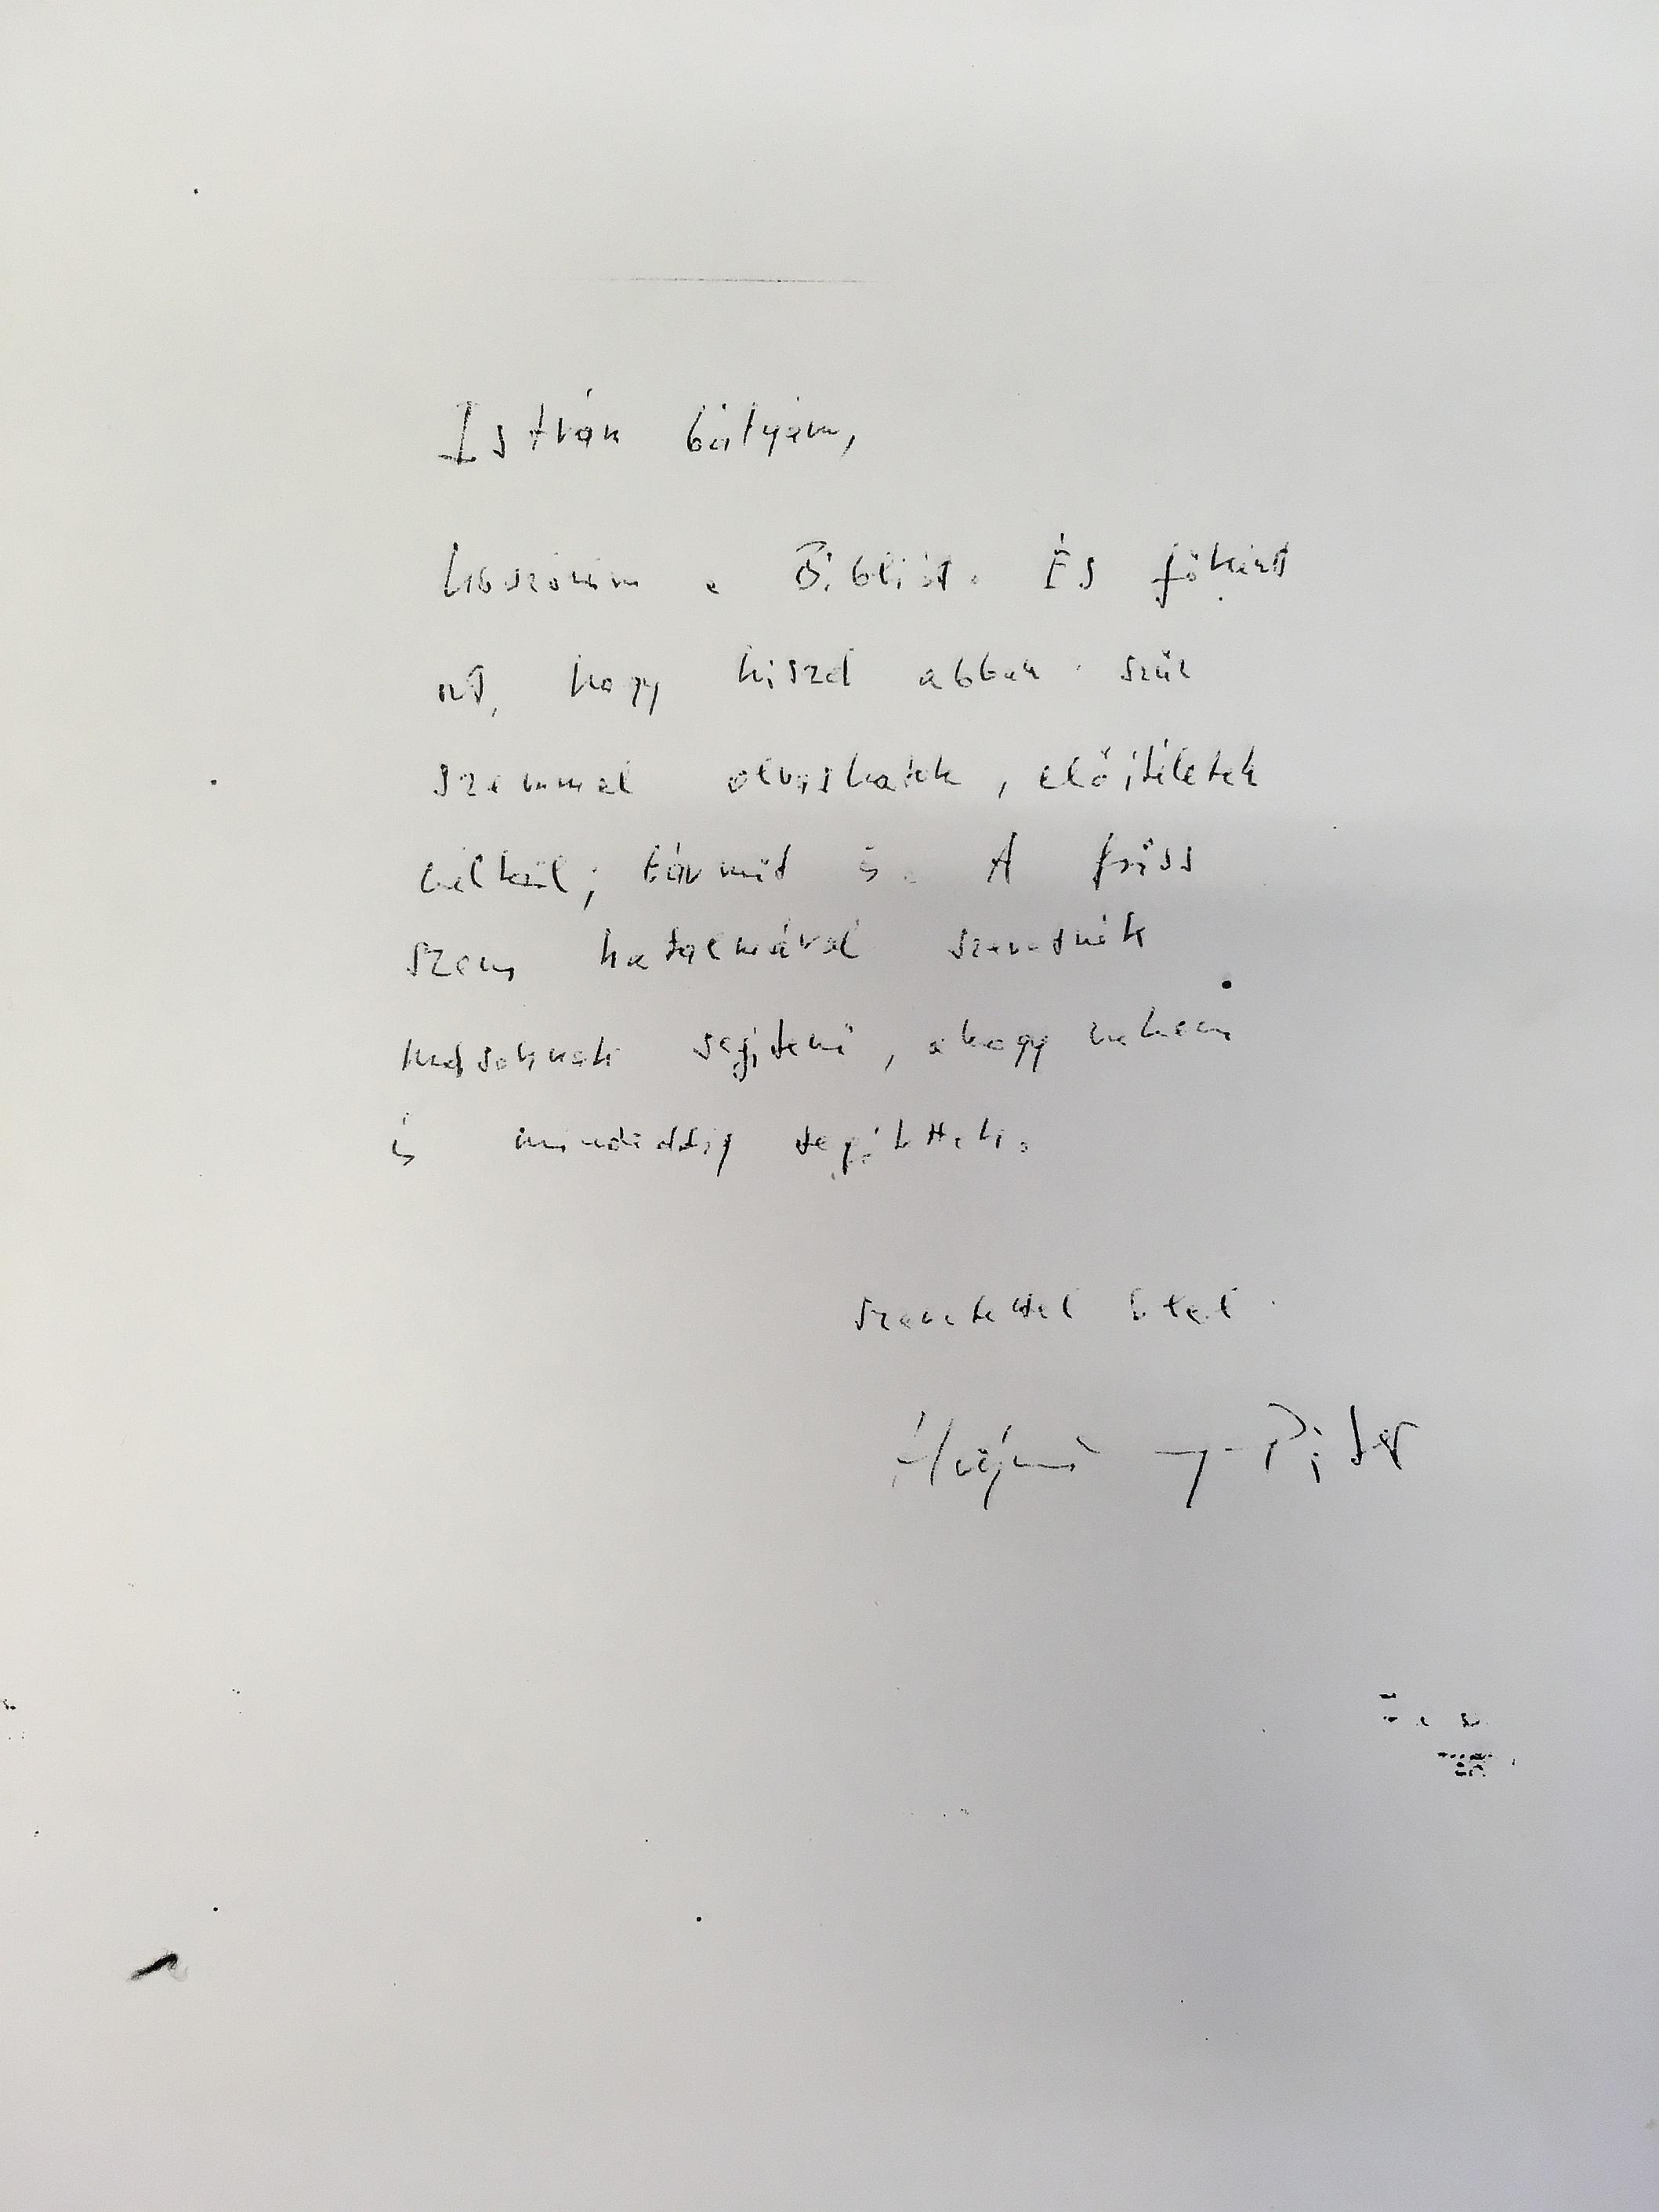 István bátyám,
köszönöm a Bibliát. És főként
azt, hogy hiszel abban szűz
szemmel olvashatok, előítéletek
nélkül; bármit is. A friss
szem hatalmával szeretnék
másoknak segíteni, ahogy nekem
is mindeddig segítettek.
szeretettel ölel
Péter